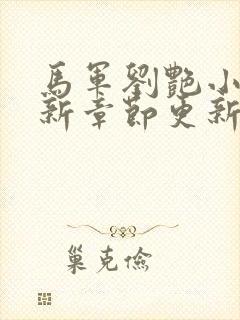 馬軍劉艷小
新章節更新
巢克儉